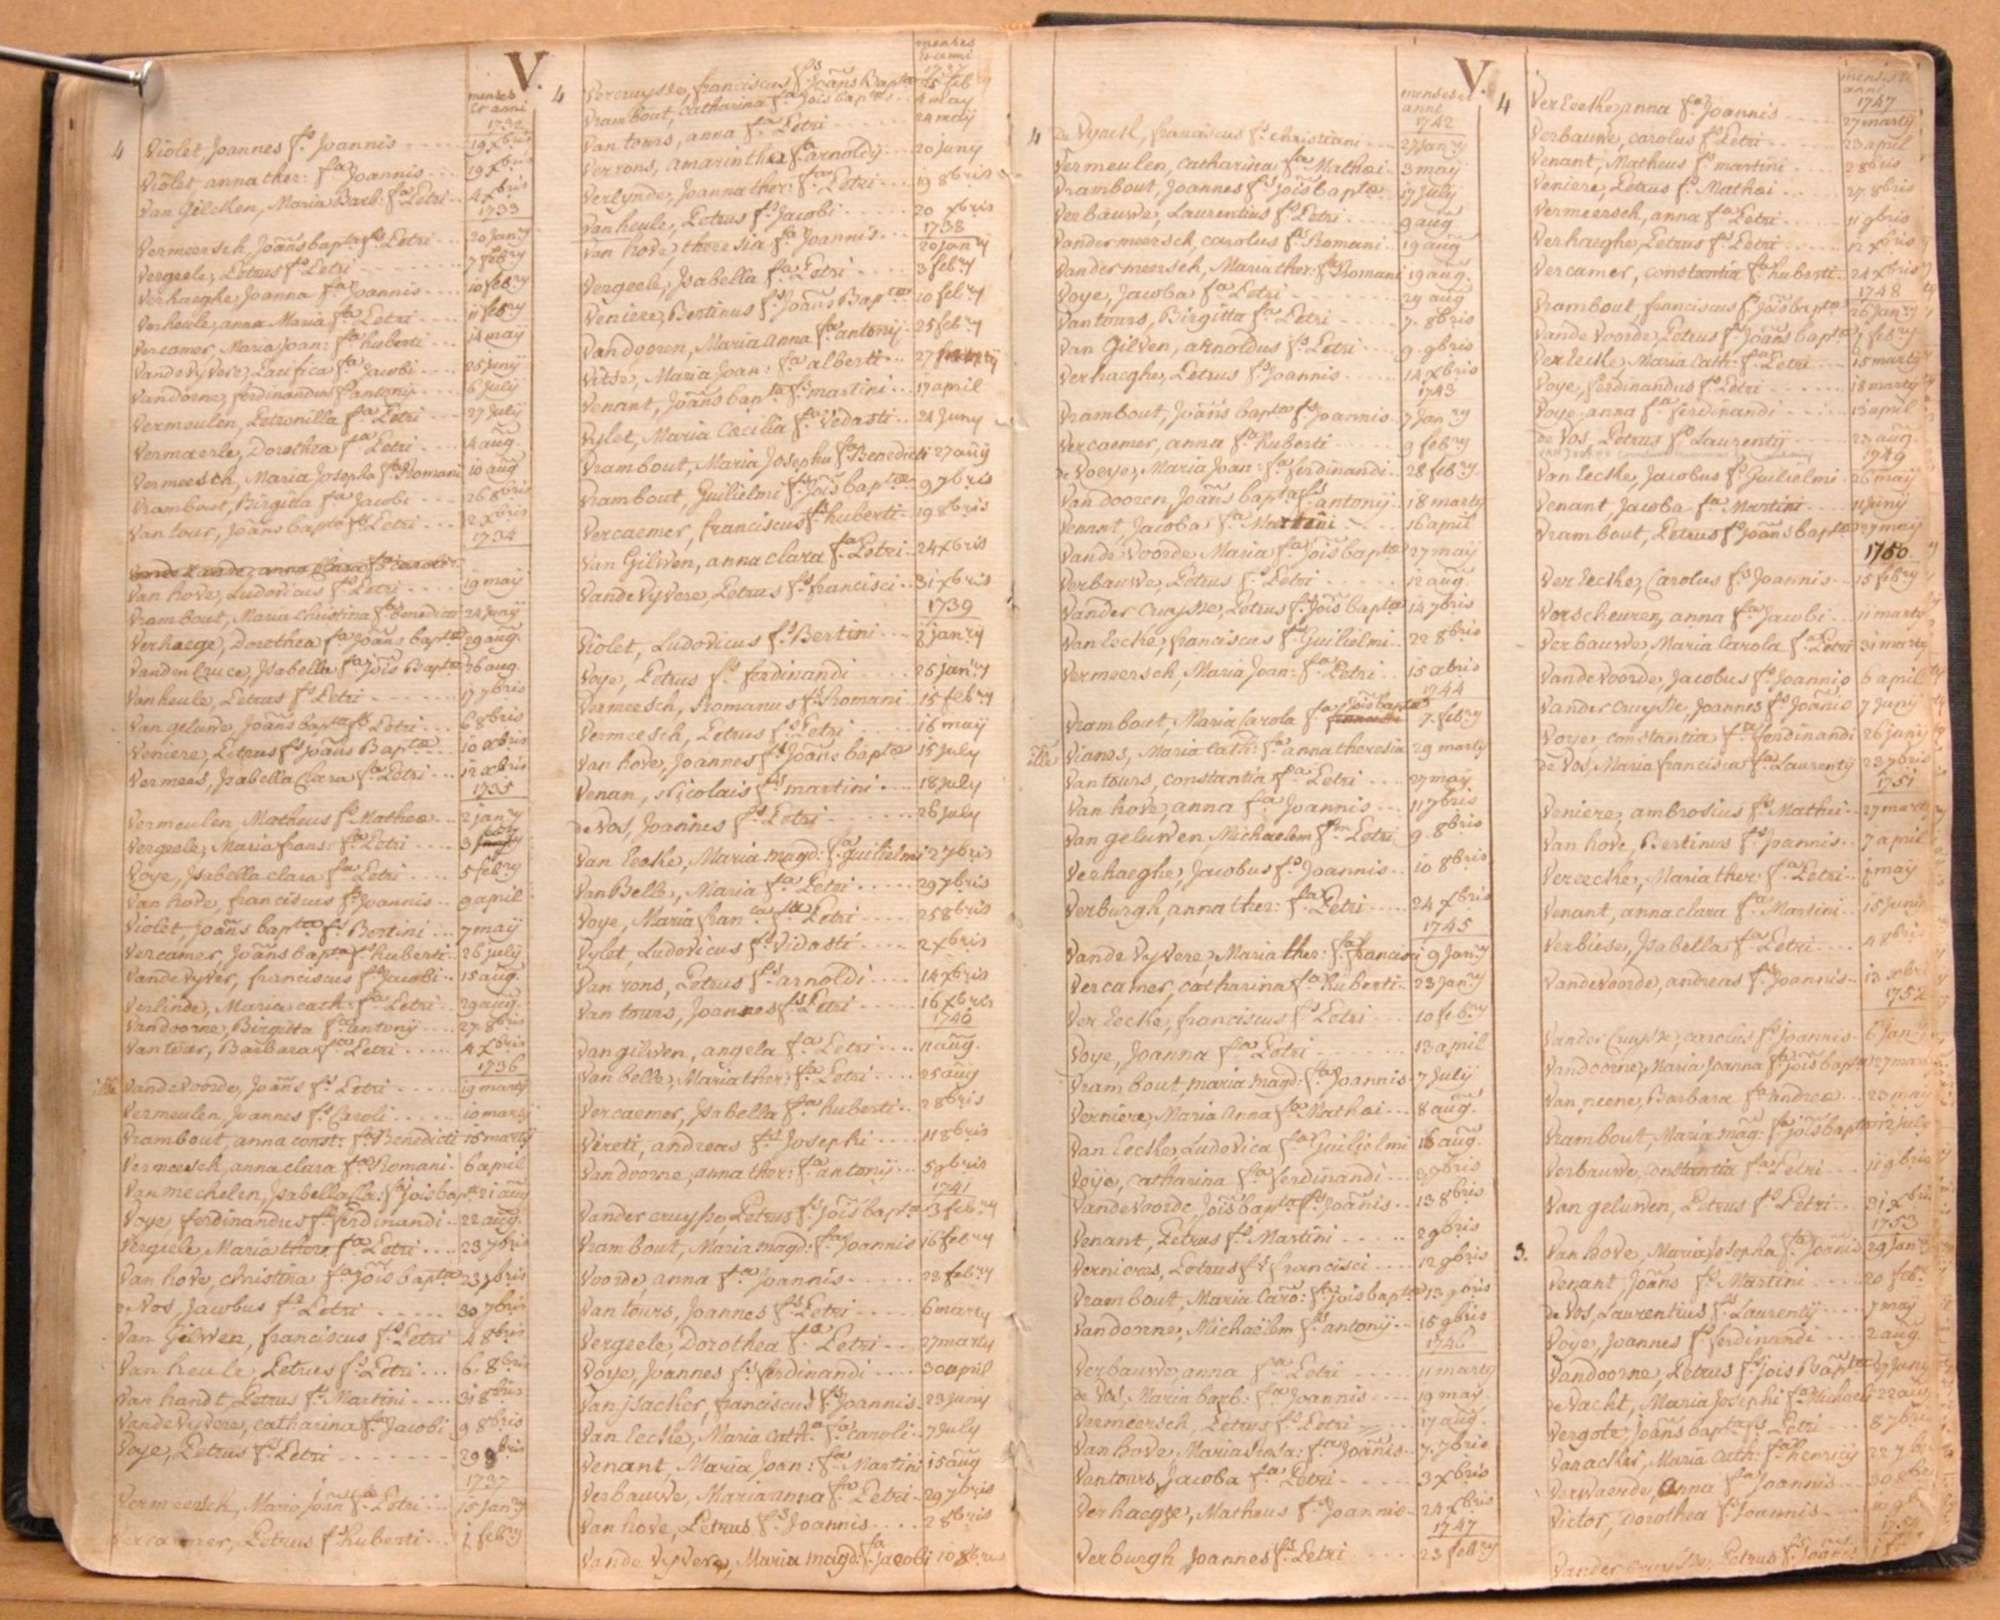 V.
menses
et anni
4
Violet Joannes fs. Joannis 19 xbris
Violet anna ther: fa Joannis 19 xbris
Van Gilcken, Maria Barb: fa Petri 4 xbris
1733
Vermeersch, Joans bapta fs Petri 20 Janry
Vergeele, Petrus fs Petri 7 febry
Verhaeghe, Joanna fa Joannis 10 febry
Verheule, anna Maria fa Petri 11 febry
Vercamer, Maria Joan: fa huberti 14 maij
Vande Vyvere, Laufica fa Jacobi 25 Junij
Vandorne, ferdinandus fs antonij 6 July
Vermeulen, Petronilla fa Petri 27 July
Vermaerle, Dorothea fa Petri 4 aug.
Vermeesch, Maria Josepha fa Romani 10 aug
Vrambout, Birgitta fa Jacobi 26 8bris
Van tour, Joans bapta fs Petri 12 xbris
1734
Van hove, Ludovicus fs Petri 19 maij
Vrambout, Maria Christina fa Benedicti 28 Junij
Verhaege, Dorothea fa Joans bapta 29 aug.
Vanden Cruce, Isabella fa Jois Bapta 26 aug.
Van heule, Petrus fs Petri 17 7bris
Van geluwe, Joans bapta fs Petri 6 8bris
Veniere, Petrus fs Joans Bapta 10 xbris
Vermees, Isabella Clara fa Petri 12 xbris
1735
Vermeulen, Matheus fs Mathea 2 janry
Vergeele, Maria frans: fa Petri 3
Voye, Isabella clara fa Petri 5 febry
Van hove, franciscus fs Joannis 9 april
Violet, Joans bapta fs Bertini 7 maij
Vercamer, Joans bapta fs huberti 26 july
Vande Vyver, franciscus fs Jacobi 15 aug.
Verlinde, Maria cath: fa Petri 29 aug.
Vandoorne, Birgitta fa antonij 27 8bris
Van tour, Barbara fa Petri 4 xbris
1736
Vande Voorde, Joans fs Petri 19 marty
Vermeulen, Joannes fs Caroli 10 marty
Vrambout, anna const: fa Benedicti 15 marty
Vermeesch, anna clara fa Romani 6 april
Van mechelen, Isabella Cla: fa jois bapt 21 aug
Voye ferdinandus fs ferdinandi 22 aug.
Vergeele, Maria ther: fa Petri 23 7bris
Van hove, christina fa Jois bapta 23 7bris
de Vos, Jacobus fs Petri 30 7bris
Van Gilwen, franciscus fs Petri 4 8bris
Van heule, Petrus fs Petri 6 8bris
Van handt, Petrus fs Martini 31 8bris
Vande Vyvere, catharina fa Jacobi 9 8bris
Voye, Petrus fs Petri 29 9bris
1737
Vermeersch, Maria Joan fa Petri 15 janry
Vercamer, Petrus fs huberti 1 febry
menses
et anni
1737
4
Vercruysse, franciscus fs Joans Bapta 25 feb
Vrambout, catharina fa Jois bapta 4 may
Van tours, anna fa Petri 24 maij
Verrons, amarintha fa arnoldij 20 juny
Verlynde, Joanna ther: fa Petri 19 8bris
Van heule, Petrus fs Jacobi 20 xbris
1738
Van hove, theresia fa Joannis 20 janry
Vergeele, Isabella fa Petri 3 febry
Veniere, Bertinus fs Joans Bapta 10 febry
Van dooren, Maria anna fa antonij 25 febry
Vitse, Maria Joan: fa alberti 27
Venant, Joans bapta fs martini 17 april
Vylet, Maria Cæcilia fa Vedasti 24 Juny
Vrambout, Maria Josepha fa Benedicti 27 aug
Vrambout, Guilielmi fs Jois bapta 9 7bris
Vercaemer, franciscus fs huberti 19 8bris
Van Gilwen, anna clara fa Petri 24 xbris
Vande Vyvere, Petrus fs francisci 31 xbris
1739
Violet, Ludovicus fs Bertini 2 janry
Voye, Petrus fs ferdinandi 25 janry
Vermeesch, Romanus fs Romani 15 febry
Vermeesch, Petrus fs Petri 16 maij
Van hove, Joannes fs Joans bapta 15 july
Venan, Nicolais fs martini 18 july
de Vos, Joannes fs Petri 26 july
Van Eecke, Maria magd: fa Guilielmi 27bris
Van Belle, Maria fa Petri 29 7bris
Voye, Maria franca fa Petri 25 8bris
Vylet, Ludovicus fs Vidasti 2 xbris
Van rons, Petrus fs arnoldi 14 xbris
Van tours, Joannes fs Petri 16 xbris
1740
Van gilwen, angela fa Petri 11 aug.
Van belle, Maria ther: fa Petri 25 aug
Vercaemer, Isabella fa huberti 28bris
Vereti, andreas fs Josephi 11 8bris
Van doorne, anna ther: fa antonij 5 9bris
1741
Vander cruysse, Petrus fs Jois bapta 3 febry
Vrambout, Maria magd: fa Joannis 16 febry
Voorde, anna fa Joannis 22 febry
Van tours, Joannes fs Petri 6 marty
Vergeele, Dorothea fa Petri 27 marty
Voye, Joannes fs ferdinandi 30 april
Van Jsacker, franciscus fs Joannis 23 juny
Van Eecke, Maria Catha fa Caroli 7 july
Venant, Maria Joan: fa Martini 15 aug
Verbauwe, Maria anna fa Petri 29 7bris
Van hove, Petrus fs Joannis 2 8bris
Vande Vyvere, Maria magd: fa jacobi 10 8bris
V.
menses et
anni
1742
4
de Vynck, franciscus fs christiani 27 janry
Vermeulen, catharina fa Mathæi 3 maij
Vrambout, Joannes fs Jois bapta 17 july
Verbauwe, Laurentius fs Petri 9 aug
Vandermeersch, carolus fs Romani 19 aug
Vandermeersch, Maria ther: fa Romani 19 aug.
Voye, Jacoba fa Petri 24 aug
Van tours, Birgitta fa Petri 7 8bris
Van Gilven, arnoldus fs Petri 9 9bris
Verhaeghe, Petrus fs Joannis 14 xbris
1743
Vrambout, Joans bapta fs Joannis 7 Janry
Vercaemer, anna fa huberti 9 febry
de Voeye, Maria Joan: fa ferdinandi 28 febry
Van dooren, Joans bapta fs antonij 18 marty
Venant, Jacoba fa Martini 16 april
Vande Voorde Maria fa Jois bapta 27 maij
Verbauwe, Petrus fs Petri 12 aug.
Vander Cruysse, Petrus fs Jois bapta 14 7bris
Van Eecke, franciscus fs Guilielmi 22 8bris
Vermeersch, Maria Joan: fa Petri 15 xbris
1744
Vrambout, Maria Carola fa Jois bapta 7 febry
Vianes, Maria Cath: fa anna theresia 29 marty
Van tours, constantia fa Petri 27 maij
Van hove, anna fa Joannis 11 7bris
Van geluwen Michaelem fm Petri 9 8bris
Verhaeghe, Jacobus fs Joannis 10 8bris
Verburgh, anna ther: fa Petri 24 xbris
1745
Vande Vyvere, Maria ther: fa francisci 9 Janry
Vercamer, catharina fa huberti 23 janry
Ver Eecke, franciscus fs Petri 10 febry
Voye, Joanna fa Petri 13 april
Vrambout, maria magd: fa Joannis 7 July
Verniere, Maria Anna fa Mathæi 8 aug.
Van Eecke, Ludovica fa Guilielmi 16 aug.
Voye, catharina fa ferdinandi 9 9bris
Vande Voorde, Jois bapta fs Joannis 13 8bris
Venant, Petrus fs Martini 2 9bris
Verniores, Petrus fs francisci 12 9bris
Vrambout, Maria Caro: fa Jois bapta 13 9bris
Van dorne, Michaëlem fs antonij 15 9bris
1746
Verbauwe, anna fa Petri 11 marty
de Vos, Maria barb: fa Joannis 19 may
Vermeersch, Petrus fs Petri 17 aug.
Van hove, Maria Rosa: fa Joannis 7 7bris
Van tours, Jacoba fa Petri 3 xbris
Verhaeghe, Matheus fs Joannis 24 xbris
1747
Verburgh Joannes fs Petri 23 febry
menses et
anni
1747
4
Ver Eecke, anna fa Joannis 27 marty
Verbauwe, carolus fs Petri 23 april
Venant, Matheus fs martini 2 8bris
Veniere, Petrus fs Mathæi 27 8bris
Vermeersch, anna fa Petri 11 9bris
Verhaeghe, Petrus fs Petri 12 xbris
Vercamer, constantia fa huberti 24 xbris
1748
Vrambout franciscus fs Jois bapta 26 Janry
Vande Voorde, Petrus fs Joans bapta 1 febry
Ver Eecke, Maria Cath: fa Petri 15 marty
Voye, ferdinandus fs Petri 18 marty
Voye anna fa ferdinandi 13 april
de Vos, Petrus fs Laurentij 23 aug.
1749
Van Eecke, Jacobus fs Guilielmi 26 maij
Venant Jacoba fa Martini 11 Junij
Vrambout, Petrus fs Joans bapta 27 maij
1750
Ver Eecke, Carolus fs Joannis 15 febry
Verscheuren, anna fa Jacobi 11 marty
Verbauwe, Maria Carola fa Petri 31 marty
Vande Voorde, Jacobus fs Joannis 6 april
Vander Cruysse, Joannes fs Joans 7 Juny
Voye, constantia fa ferdinandi 26 juny
de Vos, Maria francisca fa Laurenty 23 7bris
1751
Veniere, ambrosius fs Mathei 27 marty
Van hove, Bertinus fs Joannis 7 april
Vereecke, Maria ther: fa Petri 1 may
Venant, anna clara fa Martini 15 Juny
Verbiese, Isabella fa Petri 4 8bris
Vande Voorde, andreas fs Joannis 13 xbris
1752
Vander Cruysse, carolus fs Joannis 6 Jan
Vandoorne, Maria Joanna fa Jois bapta 27 mar
Van neene, Barbara fa andreæ 23 may
Vrambout, Maria mag: fa Jois bapta 12 july
Verbauwe, Constantia fa Petri 11 9bris
Van geluwen, Petrus fs Petri 31 xbris
1753
3.
Van hove, Maria Josepha fa Joannis 29 jan
Venant, Joans fs Martini 20 feb.
de Vos, Laurentius fs Laurentij 7 may
Voye, Joannes fs ferdinandi 2 aug.
Vandoorne, Petrus fs Jois Bapta 17 juny
de Vacht, Maria Josephi fa Michaeli 22 aug
Vergote, Joans bapta fs Petri 8 7bris
Van acker, Maria Cath: fa henrici 22 7br
Verwaerde, Anna fa Joannis 30 8br
Victor, Dorothea fa Joannis
1754
Vander Cruysse, Petrus fs Joannis